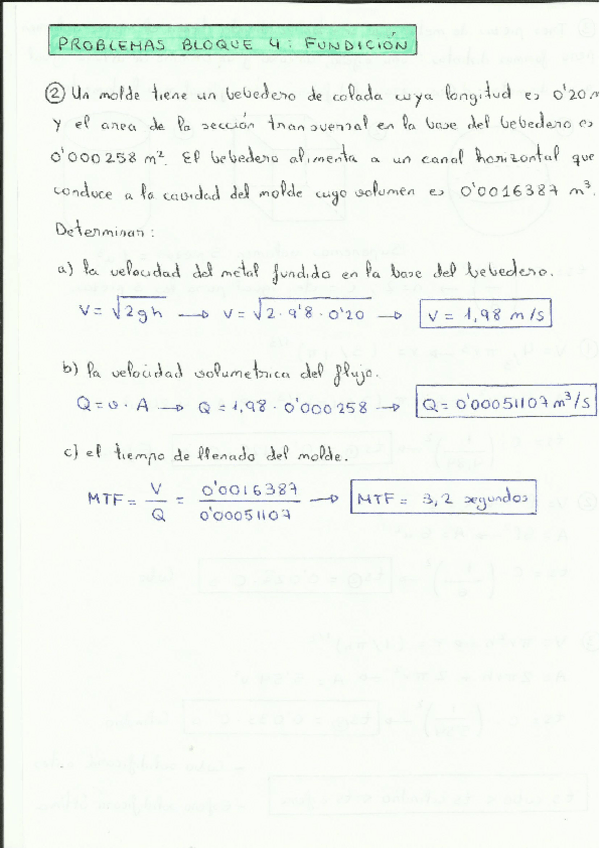 PROBLEMAS BLOQUE 4: FUNDICIÓN
② Un molde tiene un bebedero de colada cuya longitud es 0'20 m
y el area de la sección transversal en la base del bebedero es
0'000258 m². El bebedero alimenta a un canal horizontal que
conduce a la cavidad del molde cuyo volumen es 0'0016387 m³.
Determinar:
a) la velocidad del metal fundido en la base del bebedero.
V = √2gh → V = √2·9'8·0'20 → V = 1,98 m/s
b) la velocidad volumetrica del flujo.
Q = v·A → Q = 1,98·0'000258 → Q = 0'00051107 m³/s
c) el tiempo de llenado del molde.
MTF = V/Q = 0'0016387/0'00051107 → MTF = 3,2 segundos